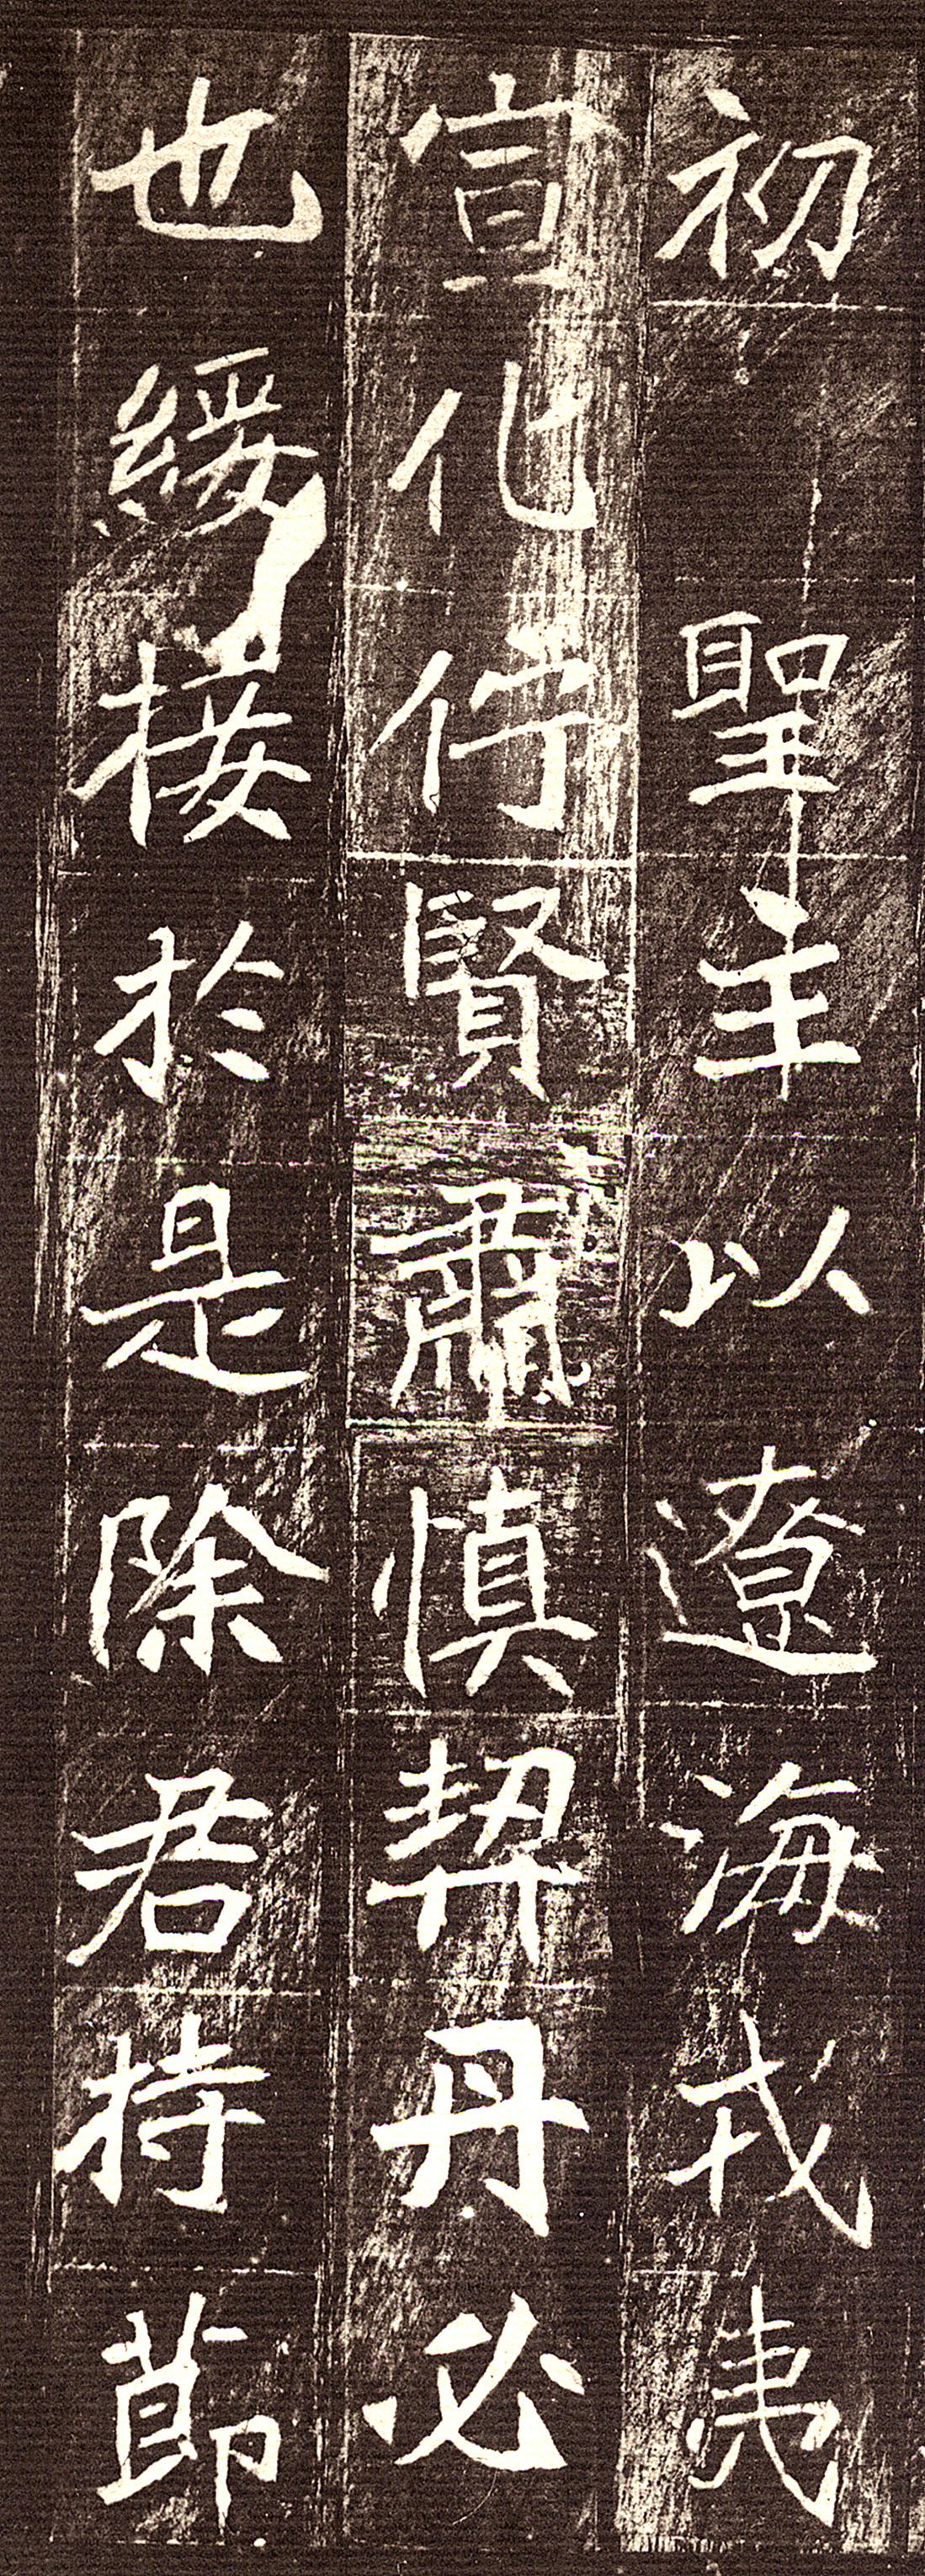 初聖主以遼海戎夷
宣化佇賢肅慎契丹必
也綏接於是除君持節